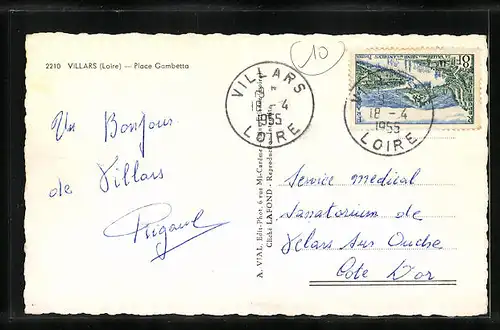 2210 VILLARS (Loire) — Place Gambetta
10
VILLARS
18 - 4
1955
LOIRE
18 - 4
1955
LOIRE
Un Bonjour
de Villars
Rigaud
A. VIAL, Edit.-Phot. 6 rue Mi-Carême
Cliché LAFOND - Reproduction
Service medical
Sanatorium de
Velars sur Ouche
Côte D'or